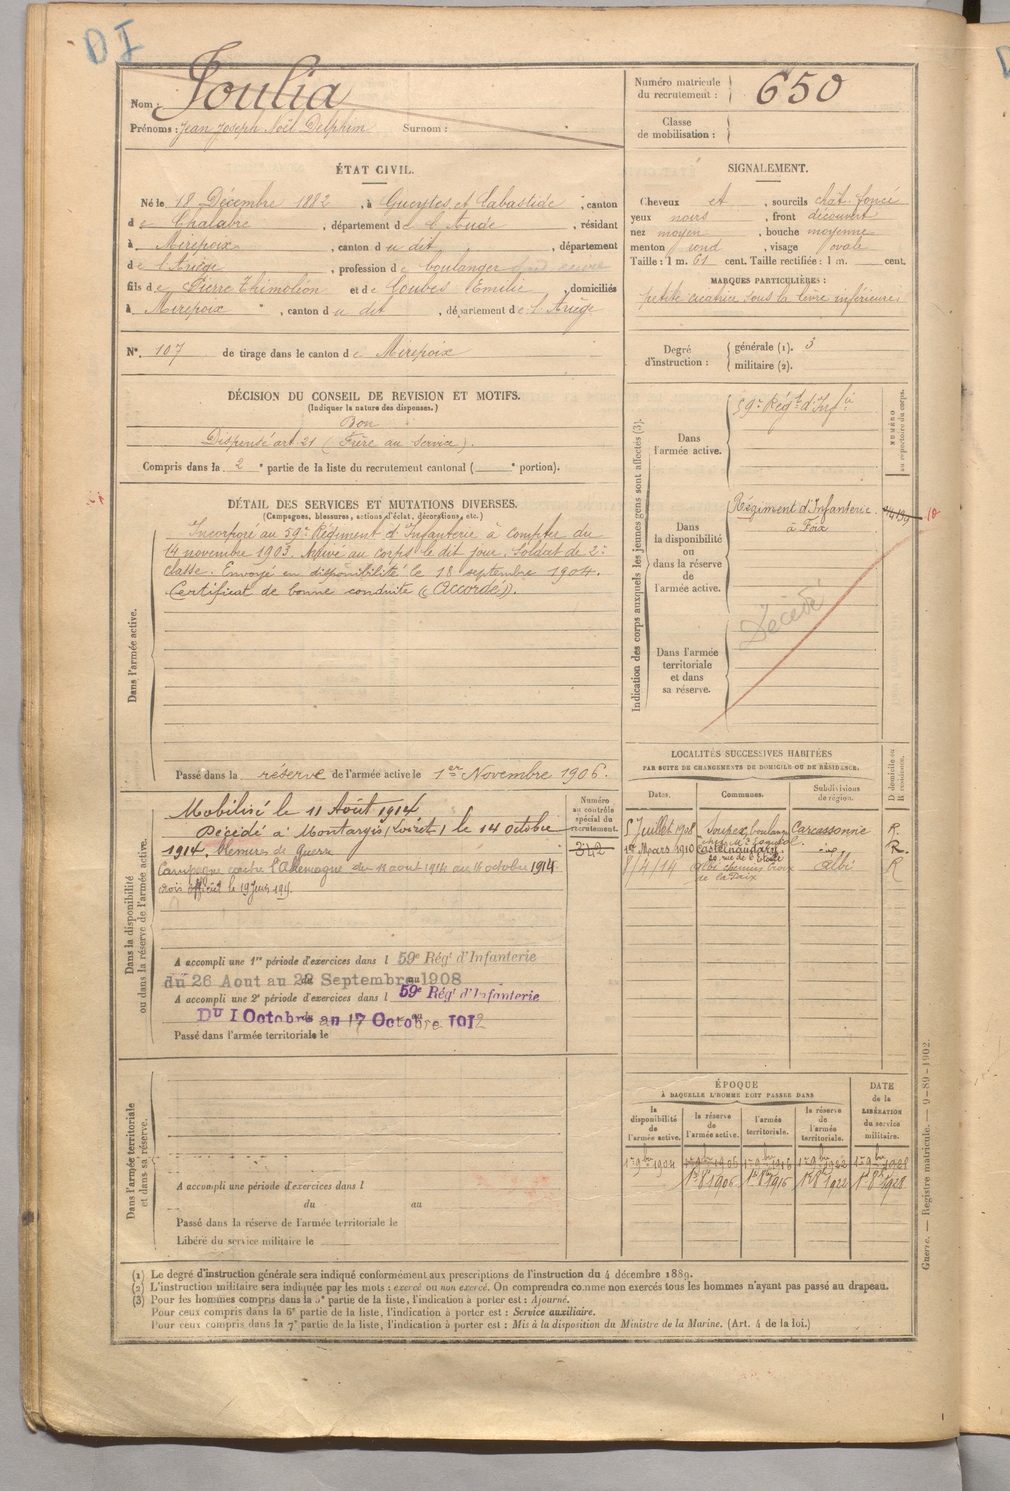 D I
Nom : Joulia
Prénoms : Jean Joseph Noël Delphin Surnom :
Numéro matricule du recrutement : 650
Classe de mobilisation :
ÉTAT CIVIL.
Né le 18 Décembre 1882, à Gueytes et Labastide, canton
de Chalabre, département de l'Aude, résidant
à Mirepoix, canton du dit, département
de l'Ariège, profession de boulanger
fils de Pierre Thimoléon et de Loubes Emilie, domiciliés
à Mirepoix, canton du dit, département de l'Ariège
N° 107 de tirage dans le canton de Mirepoix
SIGNALEMENT.
Cheveux et, sourcils chât. foncé
yeux noirs, front découvert
nez moyen, bouche moyenne
menton rond, visage ovale
Taille : 1 m. 61 cent. Taille rectifiée : 1 m. cent.
MARQUES PARTICULIÈRES :
petite cicatrice sous la lèvre inférieure
Degré d'instruction : générale (1). 3
militaire (2).
DÉCISION DU CONSEIL DE REVISION ET MOTIFS.
(Indiquer la nature des dispenses.)
Bon
Dispensé art. 21 (Frère au service).
Compris dans la 2e partie de la liste du recrutement cantonal ( e portion).
DÉTAIL DES SERVICES ET MUTATIONS DIVERSES.
(Campagnes, blessures, actions d'éclat, décorations, etc.)
Dans l'armée active.
Incorporé au 59e Régiment d'Infanterie à compter du
14 novembre 1903. Arrivé au corps le dit jour. Soldat de 2e
classe. Envoyé en disponibilité le 18 septembre 1904.
Certificat de bonne conduite « Accordé ».
Passé dans la réserve de l'armée active le 1er Novembre 1906.
Indication des corps auxquels les jeunes gens sont affectés (3).
Dans l'armée active.
59e Régt d'Infie
NUMÉRO au répertoire du corps.
Dans la disponibilité ou dans la réserve de l'armée active.
Régiment d'Infanterie
à Foix
Décédé
Dans l'armée territoriale et dans sa réserve.
Dans la disponibilité ou dans la réserve de l'armée active.
Numéro au contrôle spécial du recrutement.
342
Mobilisé le 11 Août 1914
Décédé à Montargis (Loiret) le 14 octobre
1914. Blessures de Guerre
Campagne contre l'Allemagne du 11 aout 1914 au 14 octobre 1914
A accompli une 1re période d'exercices dans l 59e Régt d'Infanterie
du 26 Aout au 22 Septembre 1908
A accompli une 2e période d'exercices dans l 59e Régt d'Infanterie
Du 1 Octobre au 17 Octobre 1912
Passé dans l'armée territoriale le
LOCALITÉS SUCCESSIVES HABITÉES
PAR SUITE DE CHANGEMENTS DE DOMICILE OU DE RÉSIDENCE.
Dates. Communes. Subdivisions de région. D domicile ou R résidence.
5 Juillet 1908 Soupex, boulanger Carcassonne R.
1er Mars 1910 Castelnaudary R.
8/4/14 Albi chemin Croix Albi R
Dans l'armée territoriale et dans sa réserve.
A accompli une période d'exercices dans l
du au
Passé dans la réserve de l'armée territoriale le
Libéré du service militaire le
ÉPOQUE
À LAQUELLE L'HOMME DOIT PASSER DANS
la disponibilité de l'armée active. la réserve de l'armée active. l'armée territoriale. la réserve de l'armée territoriale.
DATE de la LIBÉRATION du service militaire.
1er 9bre 1904 1er 9bre 1906 1er 9bre 1916 1er 9bre 1922 1er 9bre 1928
1er 8e 1906 1er 8e 1916 1er 8e 1922 1er 8e 1928
(1) Le degré d'instruction générale sera indiqué conformément aux prescriptions de l'instruction du 4 décembre 1889.
(2) L'instruction militaire sera indiquée par les mots : exercé ou non exercé. On comprendra comme non exercés tous les hommes n'ayant pas passé au drapeau.
(3) Pour les hommes compris dans la 5e partie de la liste, l'indication à porter est : Ajourné.
Pour ceux compris dans la 6e partie de la liste, l'indication à porter est : Service auxiliaire.
Pour ceux compris dans la 7e partie de la liste, l'indication à porter est : Mis à la disposition du Ministre de la Marine. (Art. 4 de la loi.)
Guerre. — Registre matricule. — 9-89-1902.